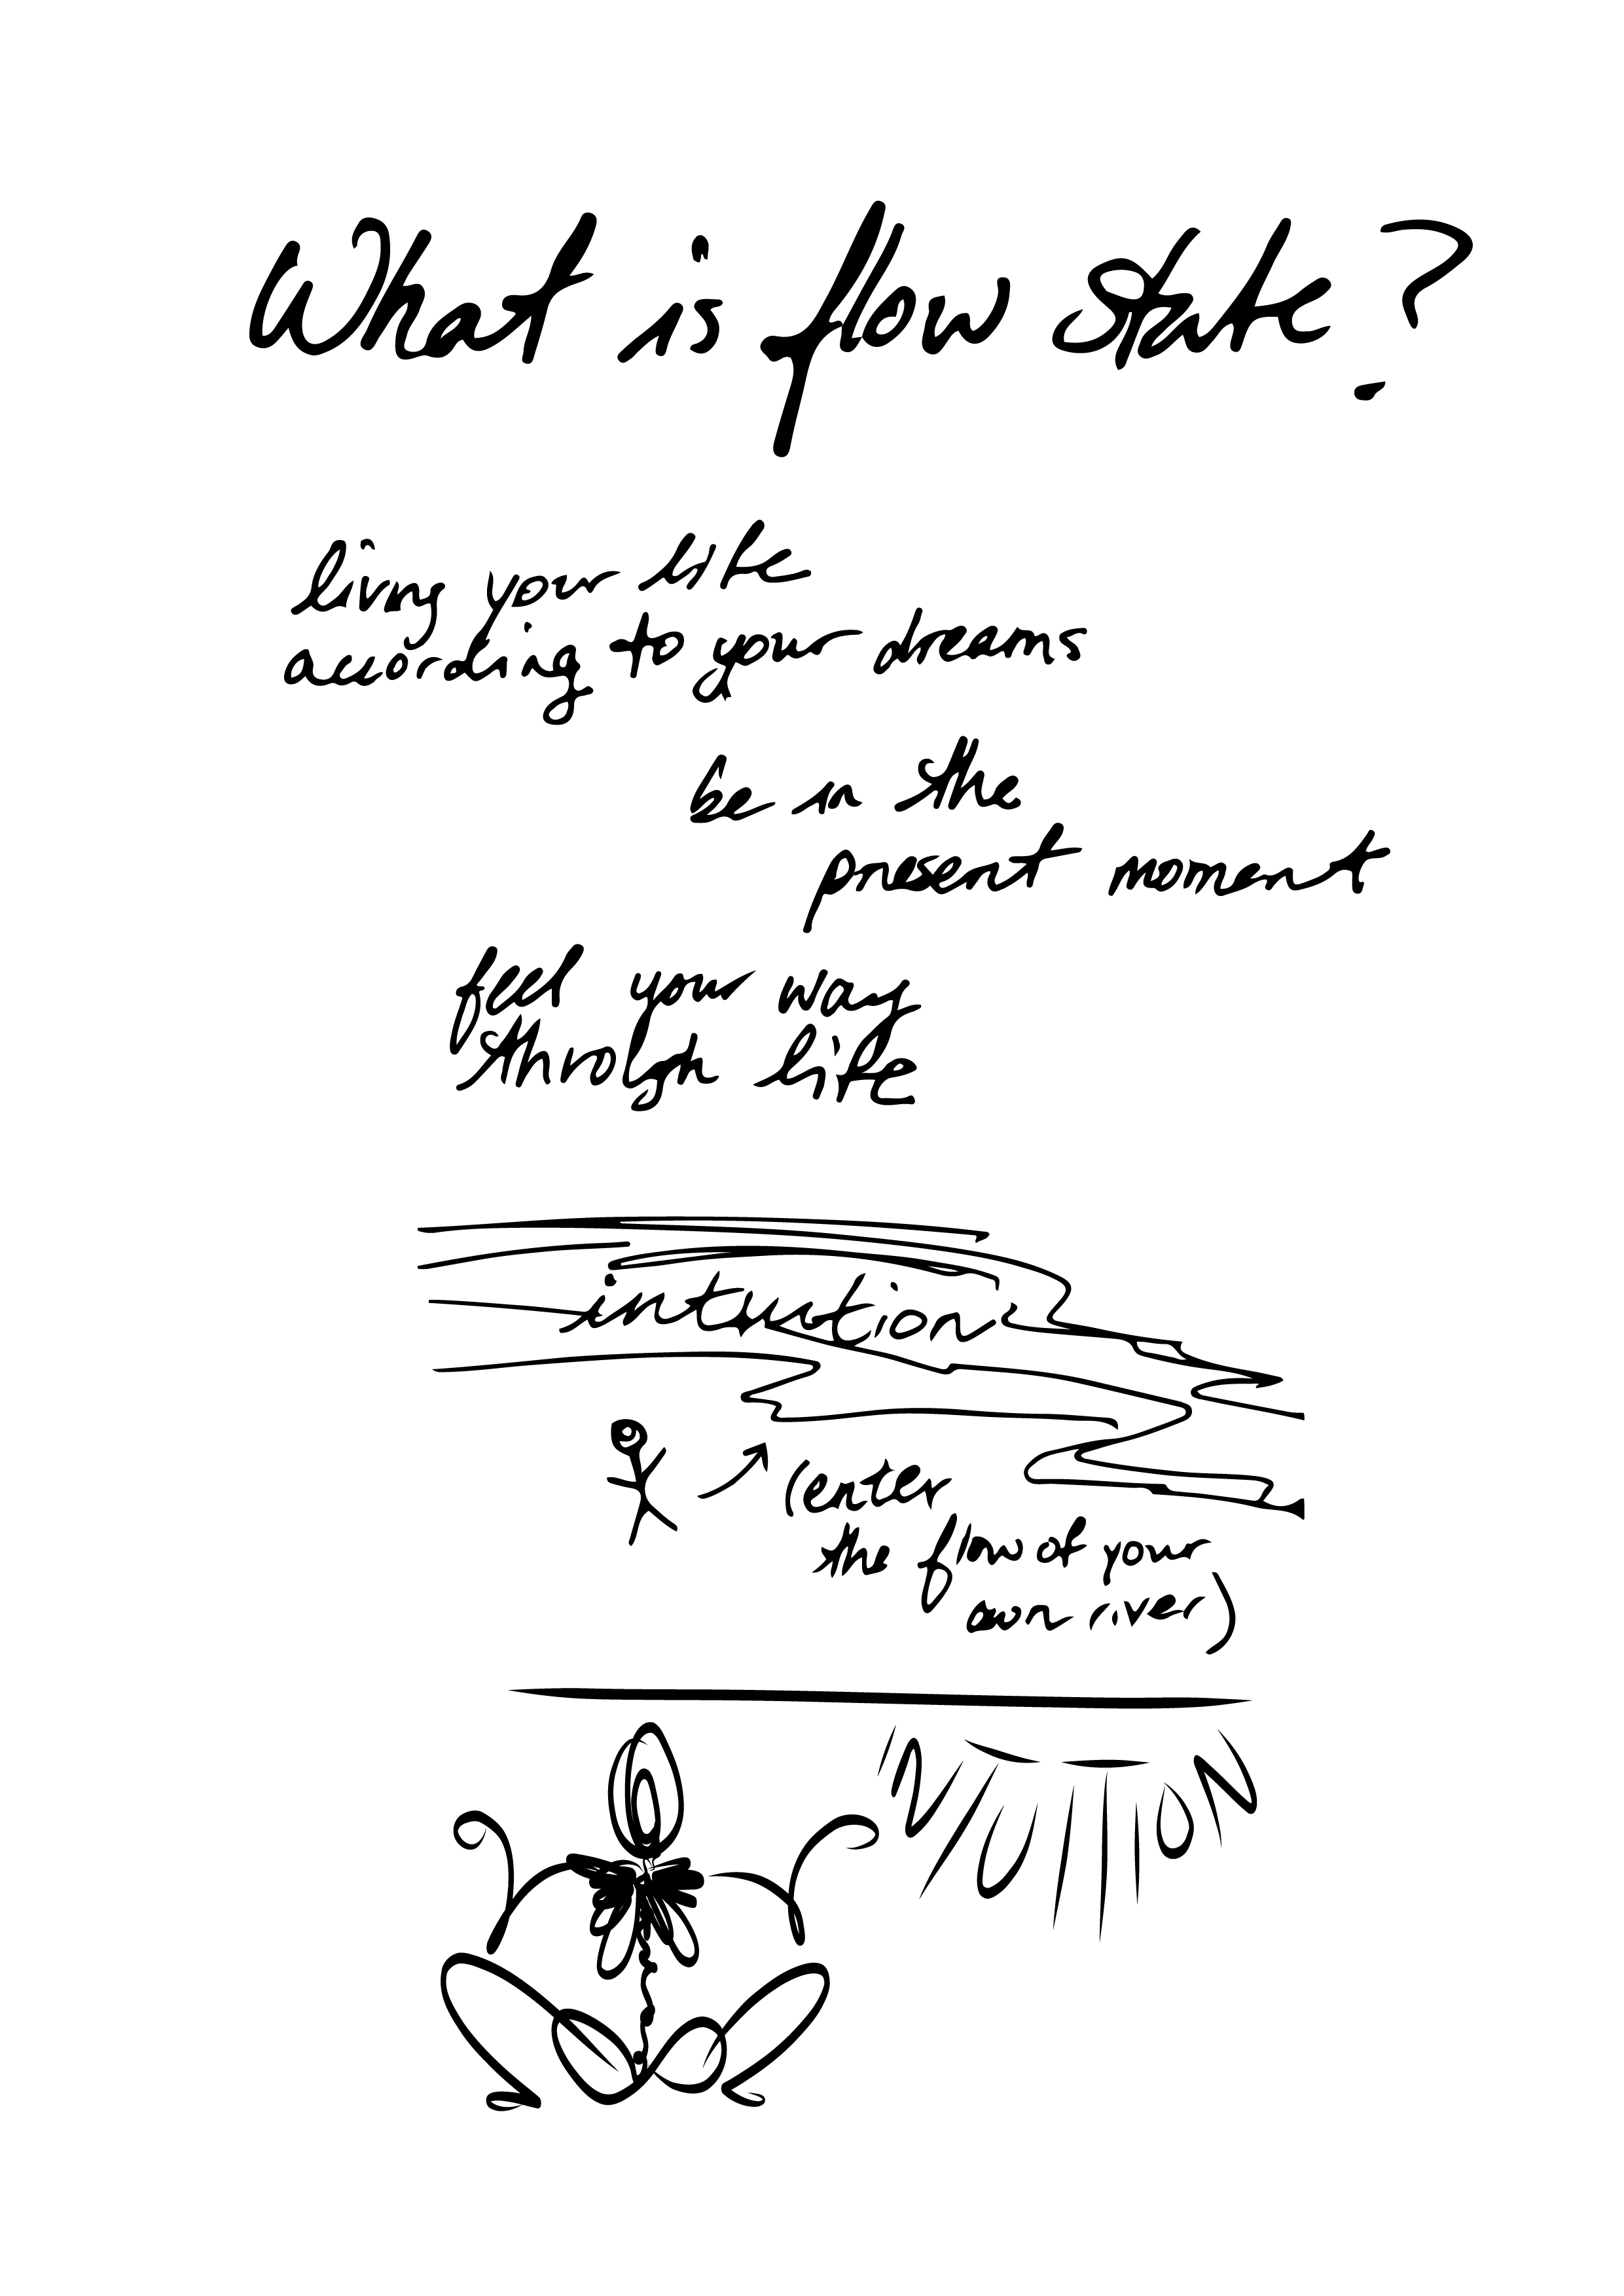 What is flow state?
living your life
according to your dreams
be in the
present moment
feel your way
through life
intuition
(enter
the flow of your
own river)
INTUITION